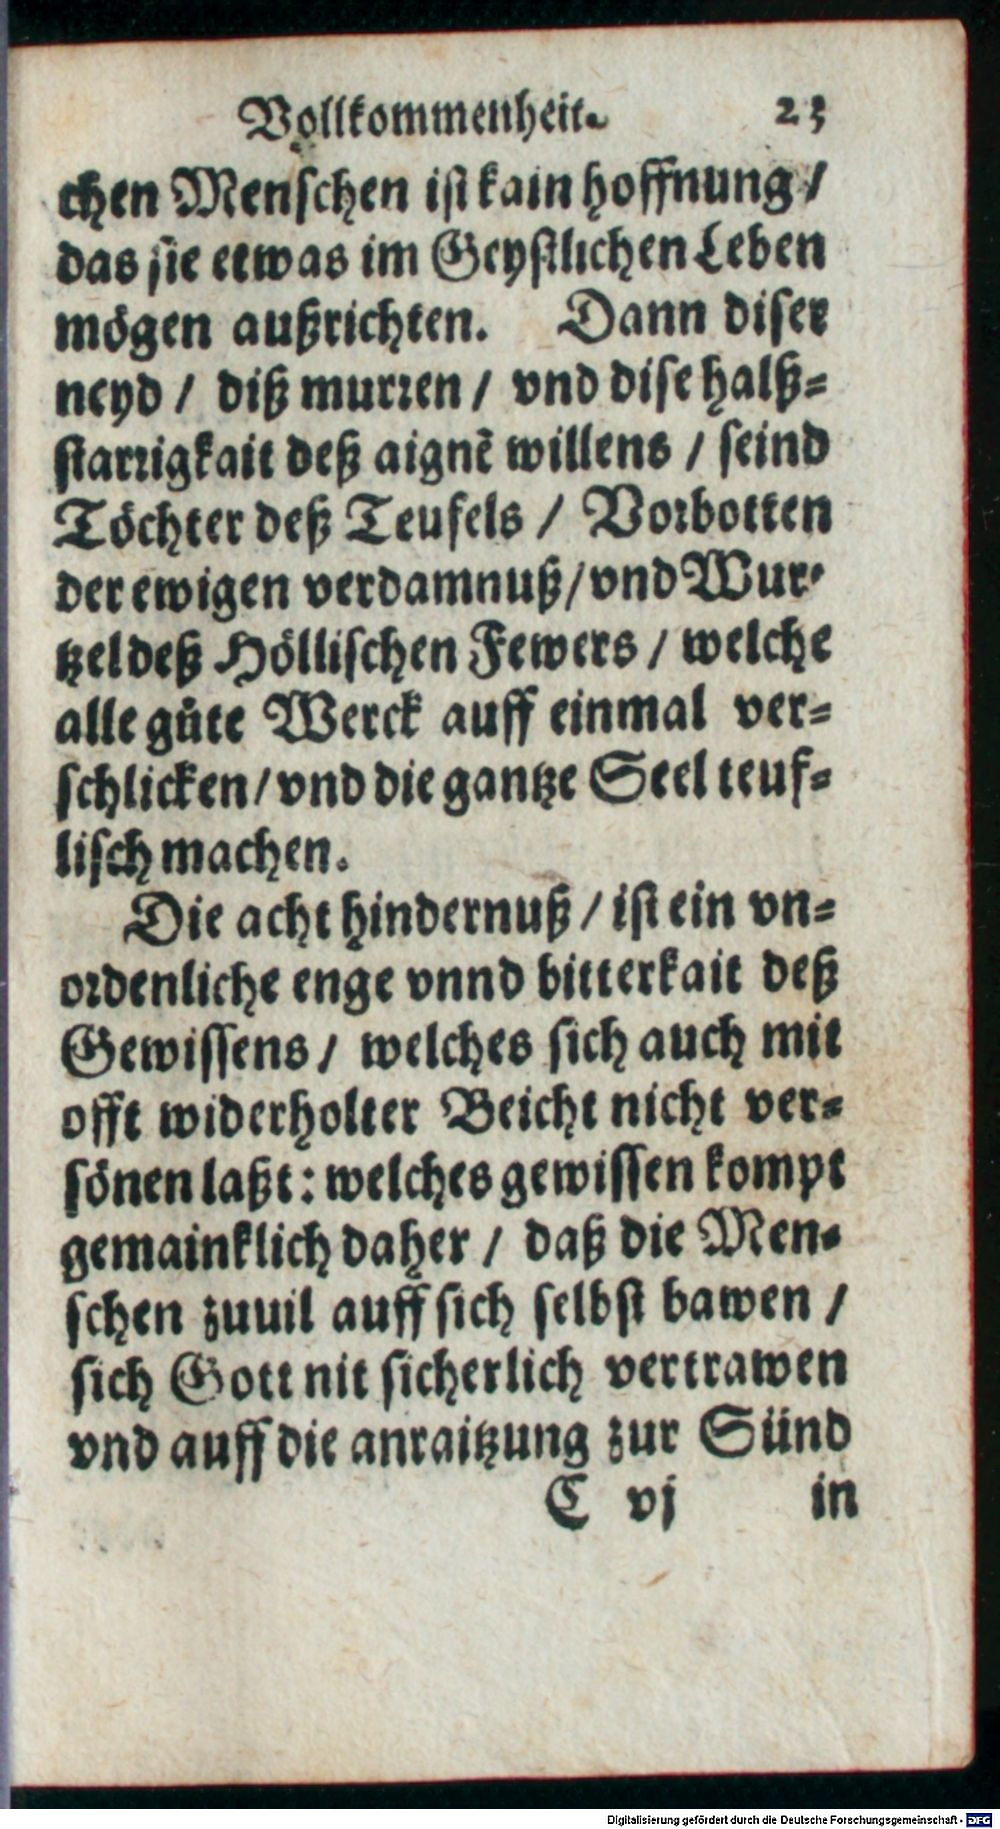 Vollkommenheit. 23
chen Menschen ist kain hoffnung /
das sie etwas im Geystlichen Leben
mögen außrichten. Dann diser
neyd / diß murren / vnd dise halß=
starrigkait deß aignē willens / seind
Töchter deß Teufels / Vorbotten
der ewigen verdamnuß / vnd Wur=
tzel deß Höllischen Fewers / welche
alle gůte Werck auff einmal ver=
schlicken / vnd die gantze Seel teuf=
lisch machen.
Die acht hindernuß / ist ein vn=
ordenliche enge vnnd bitterkait deß
Gewissens / welches sich auch mit
offt widerholter Beicht nicht ver=
sönen laßt : welches gewissen kompt
gemainklich daher / daß die Men=
schen zuuil auff sich selbst bawen /
sich Gott nit sicherlich vertrawen
vnd auff die anraitzung zur Sünd
C vj in
Digitalisierung gefördert durch die Deutsche Forschungsgemeinschaft - DFG